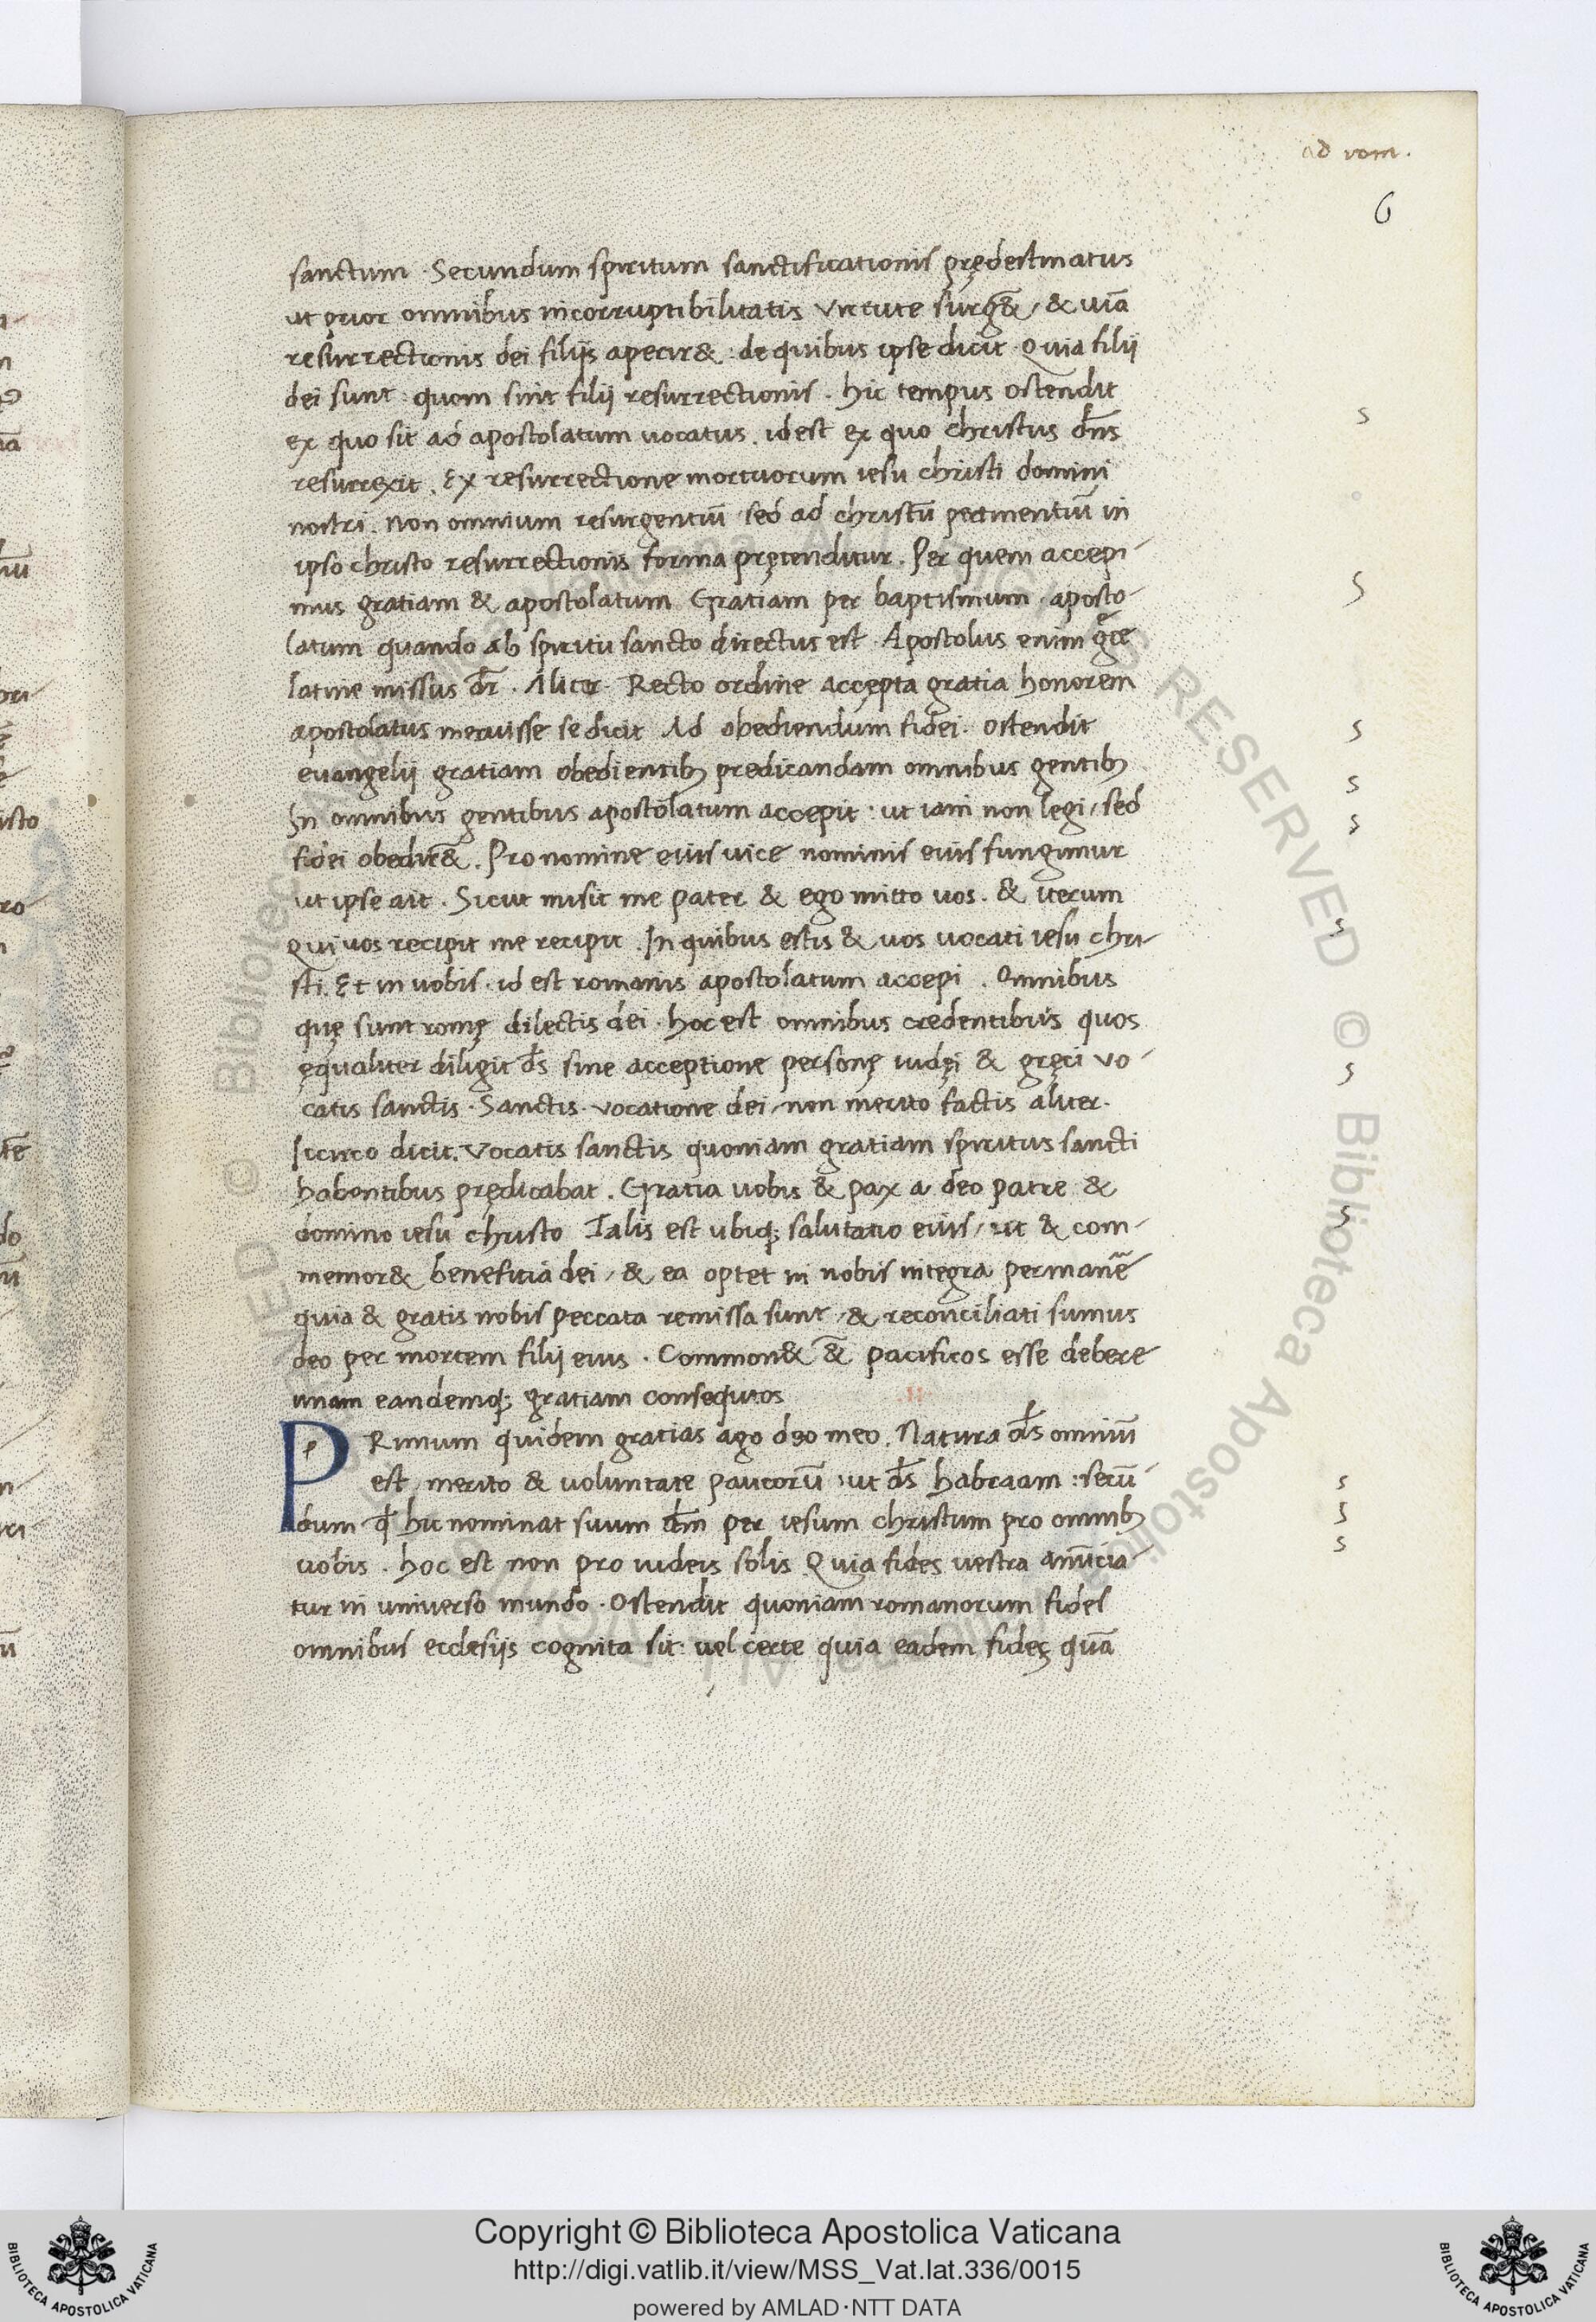 ad rom.
6
sanctum · Secundum spiritum sanctificationis prędestinatus
ut prior omnibus incorruptibilitatis virtute surg&̄, & uiā
resurrectionis dei filijs aperir& : de quibus ipse dicit · Quia filij
dei sunt : quom sint filij resurrectionis . hic tempus ostendit
ex quo sit ad apostolatum uocatus . id est ex quo christus dn̄s
resurrexit . Ex resurrectione mortuorum iesu christi domini
nostri . non omnium resurgentiū / sed ad christū pertinentiū in
ipso christo resurrectionis forma prętenditur . Per quem accepi-
mus gratiam & apostolatum Gratiam per baptismum · aposto-
latum quando ab spiritu sancto directus est · Apostolus enim grȩ̄ce
latine missus dr̄ . Aliter · Recto ordine accepta gratia honorem
apostolatus meruisse se dicit Ad obediendum fidei · ostendit
euangelij gratiam obedientib; predicandam omnibus gentib;
In omnibus gentibus apostolatum accepit : ut iam non legi / sed
fidei obedir&̄ . Pro nomine eius uice nominis eius fungimur
ut ipse ait . Sicut misit me pater & ego mitto uos . & iterum
Qui uos recipit me recipit . In quibus estis & uos uocati iesu chri-
sti . Et in uobis · id est romanis apostolatum accepi . Omnibus
quę sunt romę dilectis dei · hoc est omnibus credentibus quos
ęqualiter diligit ds̄ sine acceptione personę iudęi & gręci vo-
catis sanctis · Sanctis · vocatione dei / non merito factis aliter ·
Iccirco dicit . Vocatis sanctis quoniam gratiam spiritus sancti
habentibus prędicabat . Gratia uobis & pax a deo patre &
domino iesu christo Talis est ubiq; salutatio eius / ut & com-
memor& beneficia dei / & ea optet in nobis integra permanē
quia & gratis nobis peccata remissa sunt / & reconciliati sumus
deo per mortem filij eius . Common& &̄ pacificos esse debere
unam eandemq; gratiam consequtos
.ii.
PRimum quidem gratias ago deo meo . Natura ds̄ omniū
est / merito & voluntate paucorū : ut ds̄ habraam : secū-
dum qd̄ hic nominat suum dm̄ per iesum christum pro omnib;
uobis . hoc est non pro iudeis solis Quia fides uestra anūcia-
tur in universo mundo · Ostendit quoniam romanorum fides
omnibus ecclesijs cognita sit : uel certe quia eadem fides quā
s
s
s
s
s
s
s
s
s
s
s
Copyright © Biblioteca Apostolica Vaticana
http://digi.vatlib.it/view/MSS_Vat.lat.336/0015
powered by AMLAD·NTT DATA
BIBLIOTECA APOSTOLICA VATICANA
BIBLIOTECA APOSTOLICA VATICANA